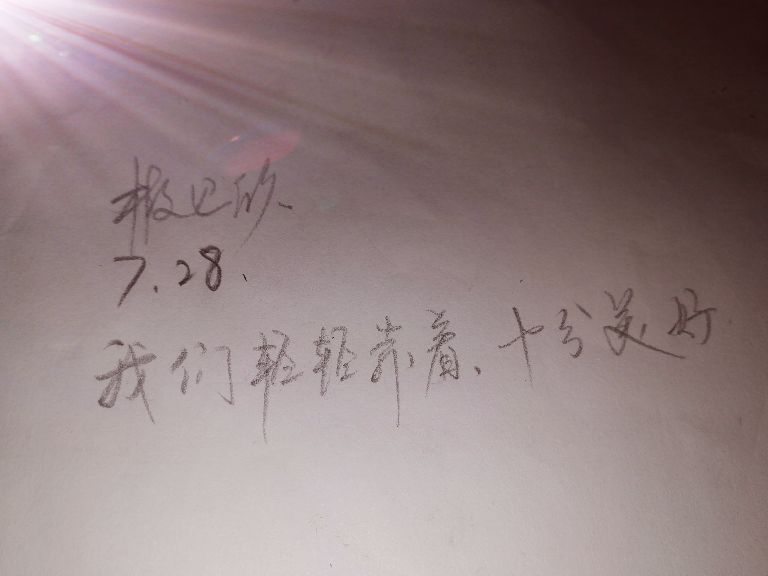 7.28.
我们轻轻靠着、十分美好